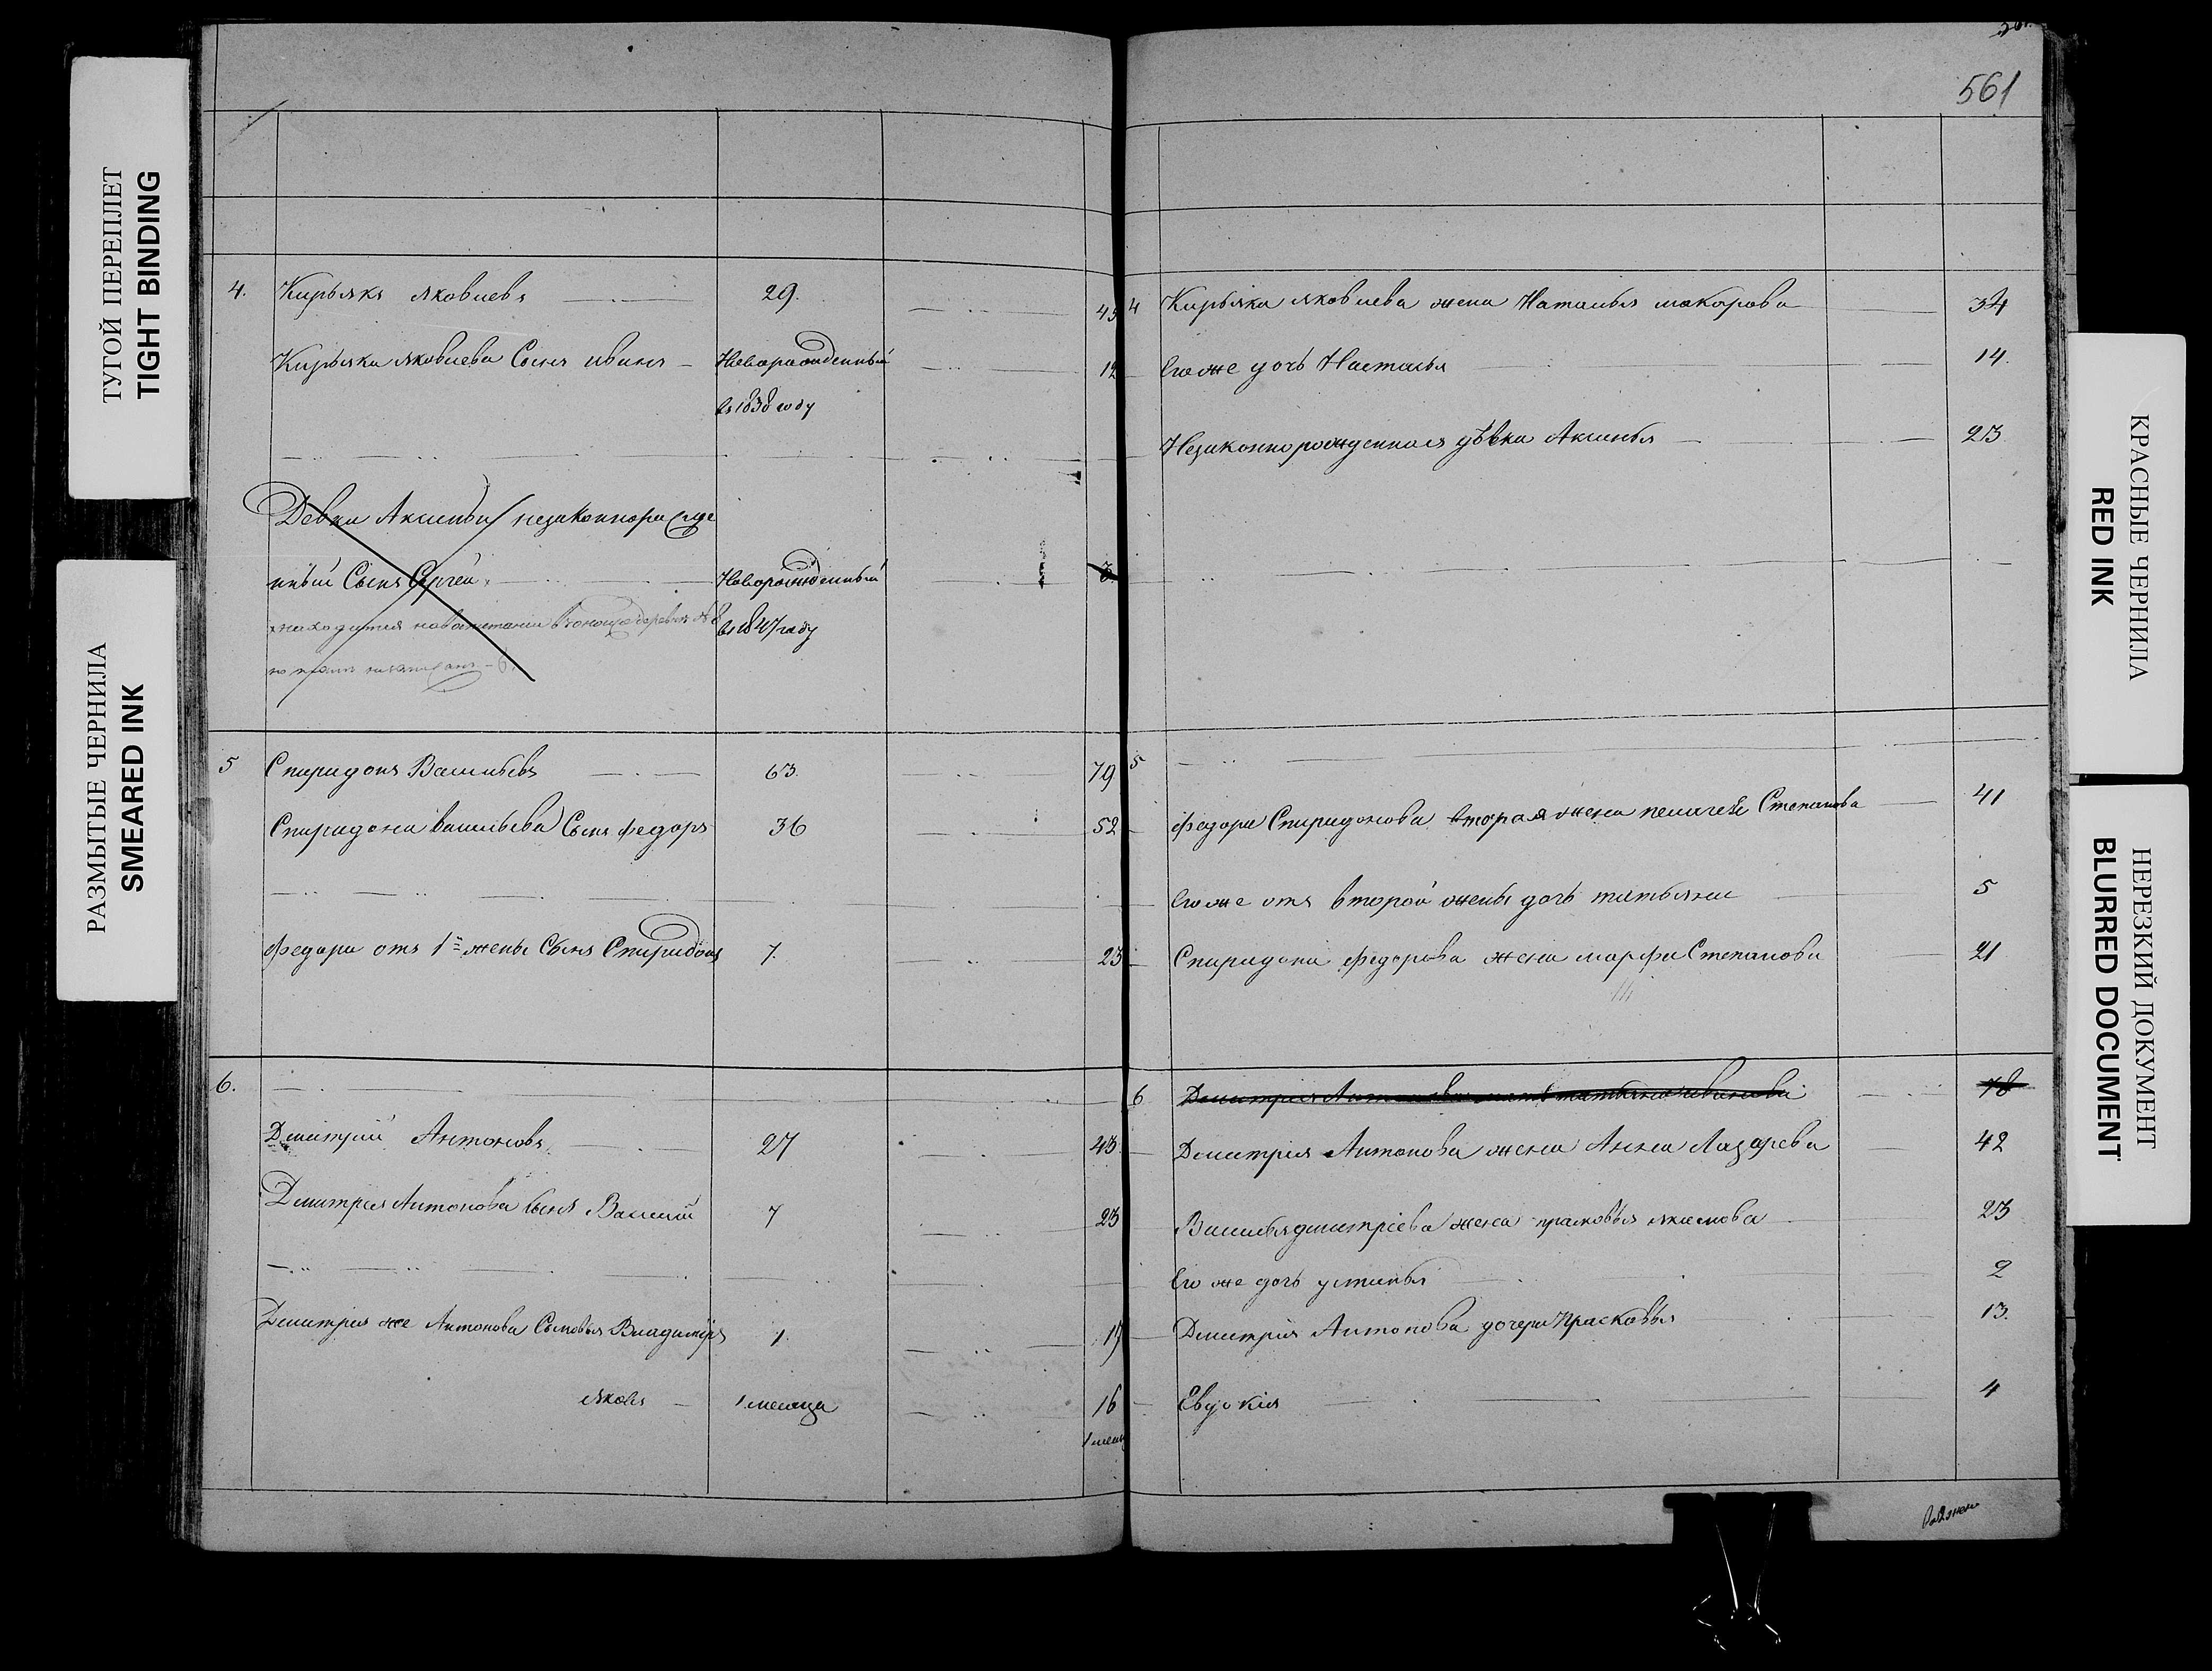 561
4. Кирьякъ Яковлевъ 29. 45
Кирьяка Яковлева Сынъ иванъ Новорожденный 12
въ 1838 году
Девки Аксиньи незаконнорожде
нный Сынъ Сергей Новорожденный 3.
находится деревня
въ 1847 году
5 Спиридонъ Васильевъ 63. 79
Спиридона васильева Сынъ Федоръ 36 52
Федора отъ 1й жены Сынъ Спиридонъ 7. 23
6.
Дмитрий Антоновъ 27 43.
Дмитрия Антонова сынъ Василий 7 23
Дмитрия же Антонова Сыновья Владимиръ 1. 17
Яковъ 1 месяца 16
1 меся
4 Кирьяка яковлева жена Наталья макарова 34
Его же дочь Настасья 14.
Незаконнорожденная дѣвка Аксинья 23
5
Федора Спиридонова вторая жена пелагея Степанова 41
Его же отъ второй жены дочь татьяна 5
Спиридона федорова жена марфа Степанова 21
6 Дмитрия Антонова мать татьяна иванова 78
Дмитрия Антонова жена Анна Лазарева 42
Василья дмитріева жена прасковья якимова 23
Его же дочь устинья 2
Дмитрія Антонова дочери Прасковья 13.
Евдокія 4
ТУГОЙ ПЕРЕПЛЕТ
TIGHT BINDING
РАЗМЫТЫЕ ЧЕРНИЛА
SMEARED INK
КРАСНЫЕ ЧЕРНИЛА
RED INK
НЕРЕЗКИЙ ДОКУМЕНТ
BLURRED DOCUMENT